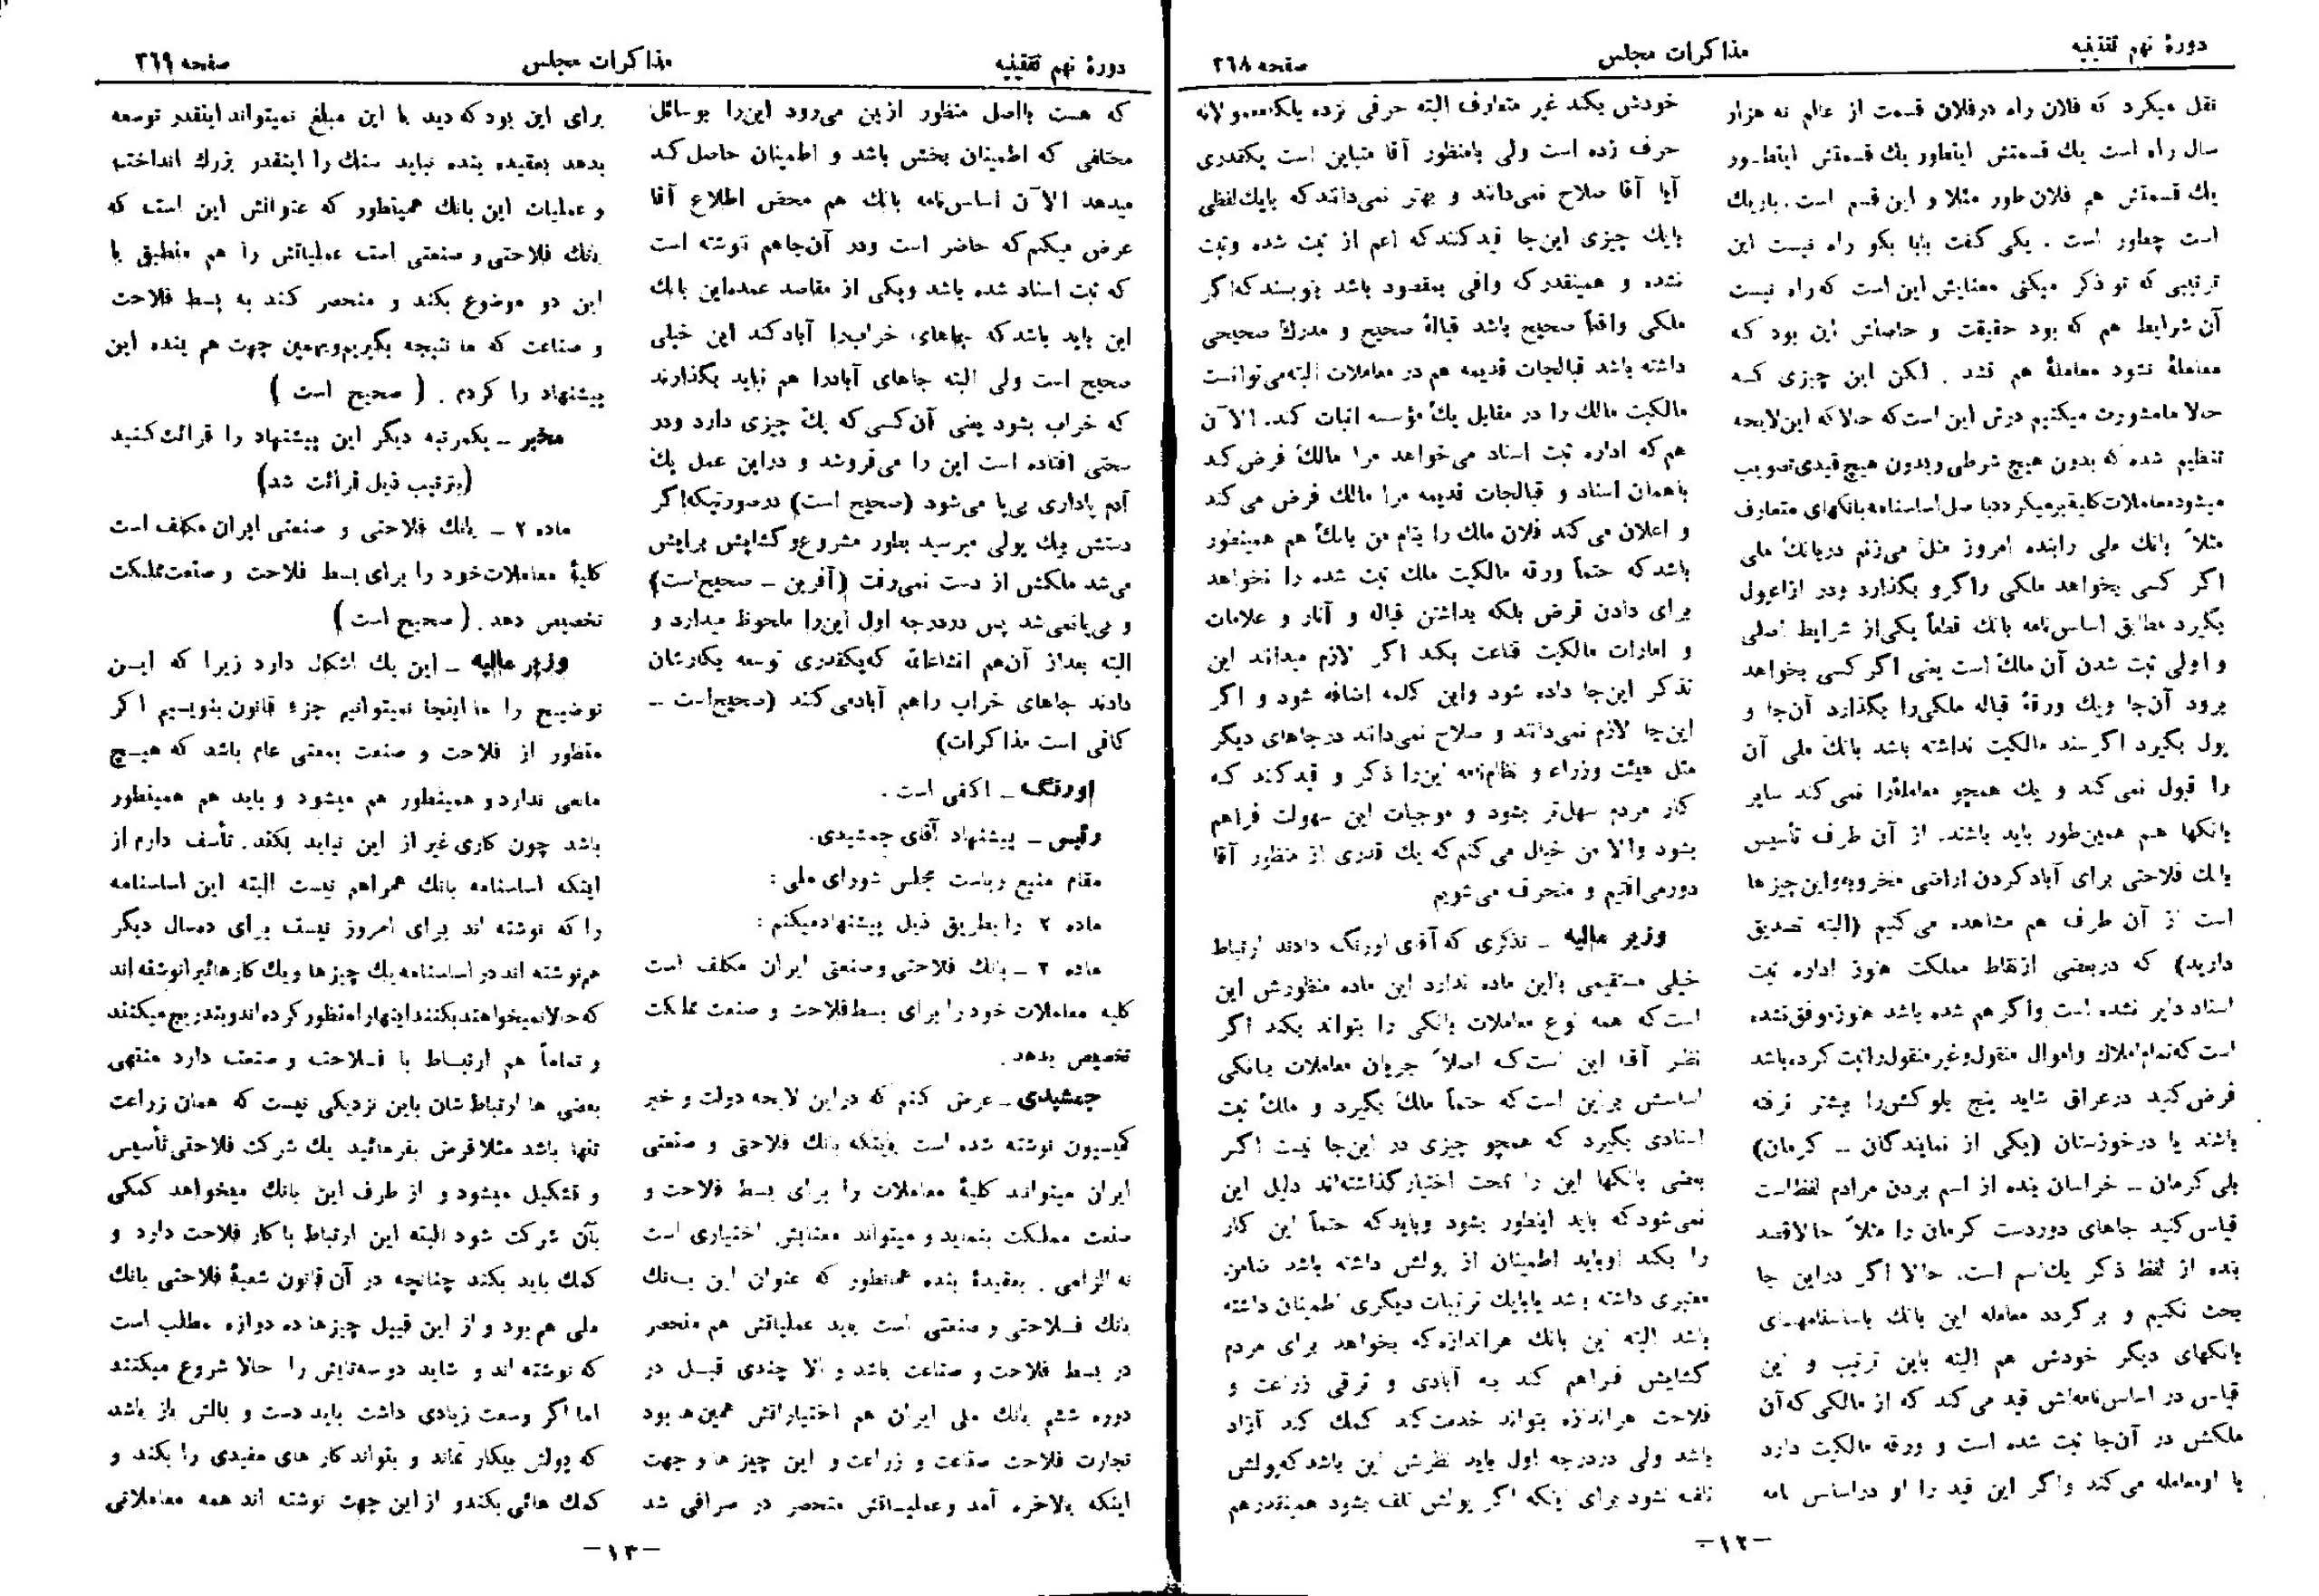 دورهٔ نهم تقنینیه
مذاکرات مجلس
صفحه ۲۶۸
نقل میکرد که فلان راه درفلان قسمت از عالم نه هزار
سال راه است یك قسمتش اینطور یك قسمتش اینطـور
یك قسمتش هم فلان طور مثلا و این قسم است. باریك
است چطور است . یکی گفت بابا بگو راه نیست این
ترتیبی که تو ذکر میکنی معنایش این است که راه نیست
آن شرایط هم که بود حقیقت و حاصلش این بود که
معاملهٔ نشود معاملهٔ هم نشد . لکن این چیزی کـه
حالا ما مشورت میکنیم درش این است که حالا که این لایحه
تنظیم شده که بدون هیچ شرطی و بدون هیچ قیدی تصویب
میشود معاملات کلیة برمیگردد با اصل اساسنامه بانکهای متعارف
مثلاً بانك ملی را بنده امروز مثل می‌زنم دربانك ملی
اگر کسی بخواهد ملکی را گرو بگذارد ودر ازاء پول
بگیرد مطابق اساس‌نامه بانك قطعاً یکی از شرایط اصلی
و اولی ثبت شدن آن ملك است یعنی اگر کسی بخواهد
برود آن‌جا ویك ورقهٔ قباله ملکی را بگذارد آن‌جا و
پول بگیرد اگر سند مالکیت نداشته باشد بانك ملی آن
را قبول نمی کند و یك همچو معاملهٔ را نمی کند سایر
بانکها هـم همین‌طور باید باشند. از آن طرف تأسیس
بانك فلاحتی برای آباد کردن اراضی مخروبه واین چیز ها
است از آن طرف هم مشاهده می‌کنیم (البته تصدیق
دارید) که دربعضی از نقاط مملکت هنوز اداره ثبت
اسناد دایر نشده است واگر هم شده باشد هنوز موفق نشده
است که تمام املاك واموال منقول و غیر منقول را ثبت کرده باشد
فرض کنید درعراق شاید پنج بلوکش را بیشتر نرفته
باشند یا درخوزستان (یکی از نمایندگان ـ کرمان)
بلی کرمان ـ خراسان بنده از اسم بردن مرادم لفظ است
قیاس کنید جاهای دوردست کرمان را مثلاً حالا قصد
بنده از لفظ ذکر یك اسم است. حالا اگر دراین جا
بحث نکنیم و برگردد معامله این بانك باساسنامه‌های
بانکهای دیگر خودش هم البته باین ترتیب و این
قیاس در اساس‌نامه‌اش قید می‌کند که از مالکی که آن
ملکش در آن‌جا ثبت شده است و ورقه مالکیت دارد
با او معامله می‌کند واگر این قید را او دراساس نامه
خودش بکند غیر متعارف البته حرفی نزده بلکه
حرف زده است ولی بامنظور آقا متباین است یکقدری
آیا آقا صلاح نمی‌دانند و بهتر نمی‌دانند که بایك لفظی
بایك چیزی این‌جا قید کنند که اعم از ثبت شده وثبت
نشده و همینقدر که وافی بمقصود باشد بنویسند که اگر
ملکی واقعاً صحیح باشد قبالهٔ صحیح و مدرك صحیحی
داشته باشد قبالجات قدیمه هم در معاملات البته می‌توانست
مالکیت مالك را در مقابل یك مؤسسه اثبات کند. الآن
هم که اداره ثبت اسناد می‌خواهد مرا مالك فرض کند
باهمان اسناد و قبالجات قدیمه مرا مالك فرض می کند
و اعلان می کند فلان ملك را بنام من بانك هم همینطور
باشد که حتماً ورقه مالکیت ملك ثبت شده را نخواهد
برای دادن قرض بلکه بداشتن قباله و آثار و علامات
و امارات مالکیت قناعت بکند اگر لازم میداند این
تذکر این‌جا داده شود واین کلمه اضافه شود و اگر
این‌جا لازم نمی‌دانند و صلاح نمی‌داند درجاهای دیگر
مثل هیئت وزراء و نظامنامه این‌را ذکر و قید کند کـه
کار مردم سهل‌تر بشود و موجبات این سهولت فراهم
بشود والا من خیال می کنم که یك قدری از منظور آقا
دورمی‌افتیم و منحرف می‌شویم
وزیر مالیه ـ تذکری که آقای اورنگ دادند ارتباط
خیلی مستقیمی بااین ماده ندارد این ماده منظورش این
است که همه نوع معاملات بانکی را بتواند بکند اگر
نظـر آقـا این است‌کـه اصلاً جریان معاملات بـانکی
اساسش براین است که حتماً ملك بگیرد و ملك ثبت
اسنادی بگیرد که همچو چیزی در این‌جا نیست اگـر
بعضی بانکها این را تحت اختیار گذاشته‌اند دلیل این
نمی‌شود که باید اینطور بشود وباید که حتماً این کار
را بکند او باید اطمینان از پولش داشته باشد ضامن
معتبری داشته باشد یابایك ترتیبات دیگری اطمینان داشته
باشد البته این بانك هراندازه که بخواهد برای مردم
گشایش فراهم کند بـه آبادی و ترقی زراعت و
فلاحت هراندازه بتواند خدمت کند کمك کند آزاد
باشد ولی دردرجه اول باید نظرش این باشد که پولش
تلف نشود برای اینکه اگر پولش تلف بشود همینقدرهم
ـ۱۲ـ
دورهٔ نهم تقنینیه
مذاکرات مجلس
صفحه ۲۶۹
که هست بااصل منظور ازبین می‌رود این‌را بوسائل
مختلفی که اطمینان بخش باشد و اطمینان حاصل کند
میدهد الآن اساس‌نامه بانك هم محض اطلاع آقا
عرض میکنم که حاضر است ودر آن‌جاهم نوشته است
که ثبت اسناد شده باشد ویکی از مقاصد عمده‌این بانك
این باید باشد که جاهای خراب‌را آباد کند این خیلی
صحیح است ولی البته جاهای آبادرا هم نباید بگذارند
که خراب بشود یعنی آن کسی که یك چیزی دارد ودر
سختی افتاده است این را می‌فروشد و دراین عمل یك
آدم پاداری بی‌پا می‌شود (صحیح است) درصورتیکه اگر
دستش بیك پولی میرسید بطور مشروع و گشایش برایش
می‌شد ملکش از دست نمی‌رفت (آفرین ـ صحیح است)
و بی‌پا نمی‌شد پس دردرجه اول این‌را ملحوظ میدارد و
البته بعداز آن‌هم انشاءالله که یکقدری توسعه بکارشان
دادند جاهای خراب راهم آباد می کند (صحیح است ـ
کافی است مذاکرات)
اورنگ ـ اکفی است .
رئیس ـ پیشنهاد آقای جمشیدی.
مقام منیع ریاست مجلس شورای ملی :
ماده ۲ را بطریق ذیل پیشنهاد میکنم :
ماده ۲ ـ بانك فلاحتی و صنعتی ایران مکلف است
کلیه معاملات خود را برای بسط فلاحت و صنعت مملکت
تخصیص بدهد .
جمشیدی ـ عرض کنم که دراین لایحه دولت و خبر
کمیسیون نوشته شده است باینکه بانك فلاحتی و صنعتی
ایران میتواند کلیهٔ معاملات را برای بسط فلاحت و
صنعت مملکت بنماید و میتواند معنایش اختیاری است
نه الزامی . بعقیدهٔ بنده همانطور که عنوان این بـانك
بانك فـلاحتی و صنعتی است باید عملیاتش هم منحصر
در بسط فلاحت و صناعت باشد و الا چندی قبـل در
دوره ششم بانك ملی ایران هم اختیاراتش همین‌ها بود
تجارت فلاحت صناعت و زراعت و این چیز ها و جهت
اینکه بالاخره آمد و عملیـاتش منحصر در صرافی شد
برای این بود که دید با این مبلغ نمیتواند اینقدر توسعه
بدهد بعقیده بنده نباید سنك را اینقدر بزرك انداخت
و عملیات این بانك همینطور که عنوانش این است که
بانك فلاحتی و صنعتی است عملیاتش را هم منطبق با
این دو موضوع بکند و منحصر کند به بسط فلاحت
و صناعت که ما نتیجه بگیریم و بهمین جهت هم بنده این
پیشنهاد را کردم . ( صحیح است )
مخبر ـ یکمرتبه دیگر این پیشنهاد را قرائت کنید
(بترتیب ذیل قرائت شد)
ماده ۲ ـ بانك فلاحتی و صنعتی ایران مکلف است
کلیهٔ معاملات خود را برای بسط فلاحت و صنعت مملکت
تخصیص دهد . ( صحیح است )
وزیر مالیه ـ این یك اشکال دارد زیرا که ایـن
توضیح را ما اینجا نمیتوانیم جزء قانون بنویسیم اگر
منظور از فلاحت و صنعت بمعنی عام باشد که هیـچ
مانعی ندارد و همینطور هم میشود و باید هم همینطور
باشد چون کاری غیر از این نباید بکند. تأسف دارم از
اینکه اساسنامه بانك همراهم نیست البته این اساسنامه
را که نوشته اند برای امروز نیست برای ده‌سال دیگر
هم نوشته اند در اساسنامه یك چیزها و یك کارهائیرا نوشته اند
که حالا نمیخواهند بکنند اینها را منظور کرده اند و بتدریج میکنند
و تماماً هم ارتبـاط با فـلاحت و صنعت دارد منتهی
بعضی ها ارتباطشان باین نزدیکی نیست که همان زراعت
تنها باشد مثلا فرض بفرمائید یك شرکت فلاحتی تأسیس
و تشکیل میشود و از طرف این بانك میخواهد کمکی
بآن شرکت شود البته این ارتباط با کار فلاحت دارد و
کمك باید بکند چنانچه در آن قانون شعبهٔ فلاحتی بانك
ملی هم بود و از این قبیل چیزها ده دوازه مطلب است
که نوشته اند و شاید دو سه‌تایش را حالا شروع میکنند
اما اگر وسعت زیادی داشت باید دست و بالش باز باشد
که پولش بیکار نماند و بتواند کار های مفیدی را بکند و
کمك هائی بکند و از این جهت نوشته اند همه معاملاتی
ـ۱۳ـ